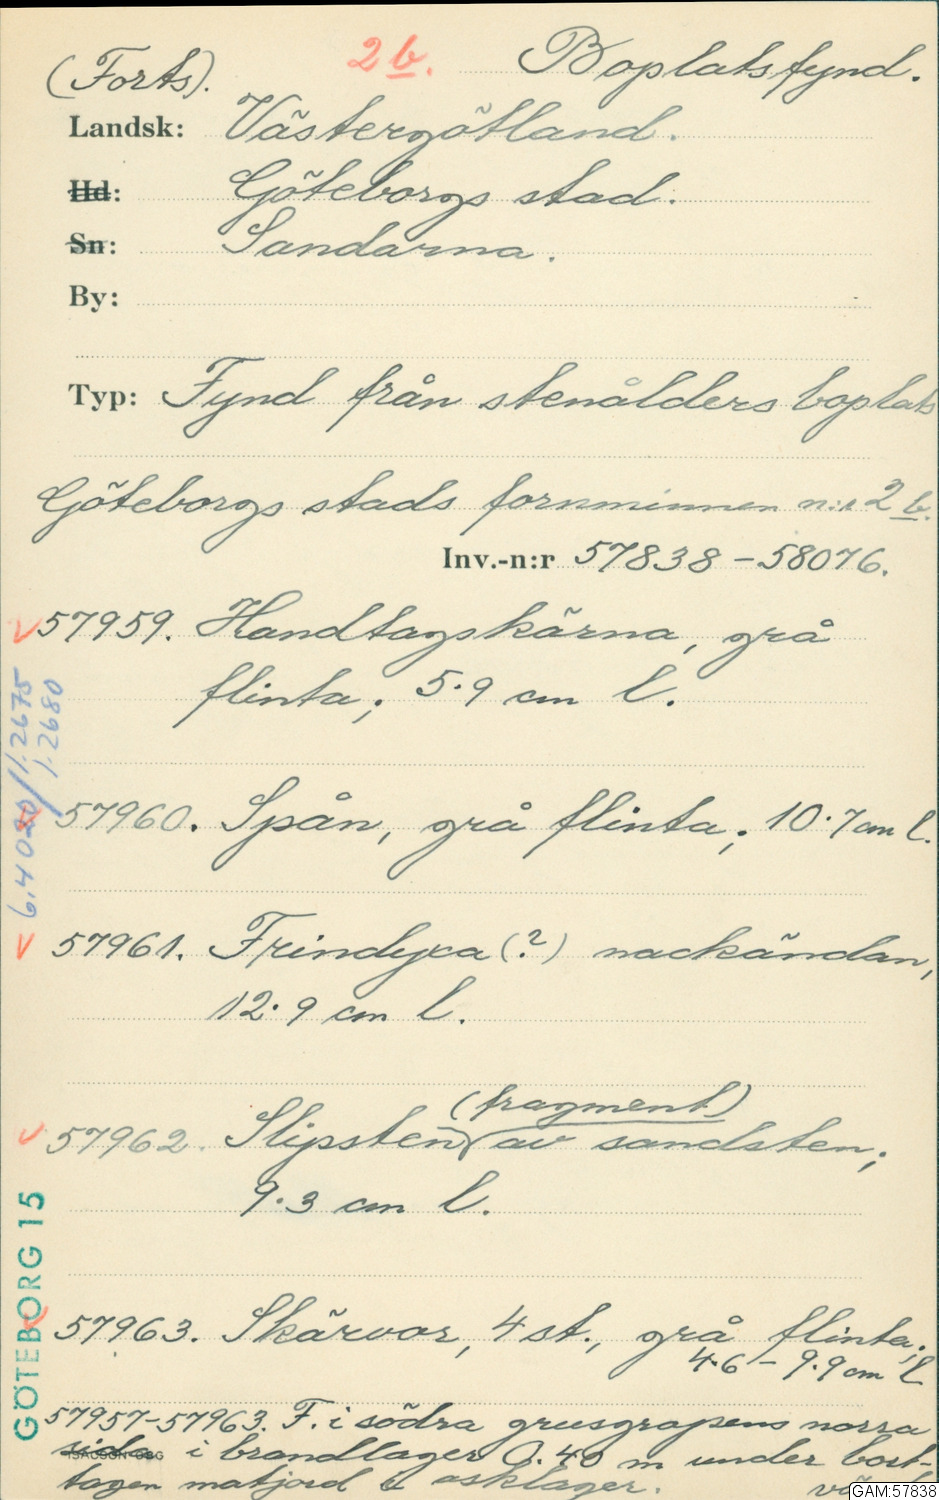 (Forts). 2b. Boplatsfynd.
Landsk: Västergötland.
Hd: Göteborgs stad.
Sn: Sandarna.
By:
Typ: Fynd från stenålders boplats
Göteborgs stads fornminnen n:r 2 b.
Inv.-n:r 57838-58076.
57959. Handtagskärna, grå
flinta; 5.9 cm l.
57960. Spån, grå flinta; 10.7 cm l.
57961. Trindyxa (?) nackändan,
12.9 cm l.
(fragment)
57962. Slipsten av sandsten;
9.3 cm l.
57963. Skärvor, 4 st., grå flinta;
4.6 - 9.9 cm l
57957-57963. F. i södra grusgropens norra
sida i brandlager 0.40 m under bort-
tagen matjord i asklager.
6.4020/1.2675
/1.2680
GÖTEBORG 15
GAM:57838